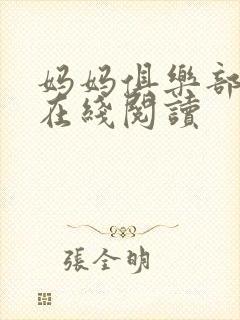 妈妈俱樂部
在綫閱讀
張全明